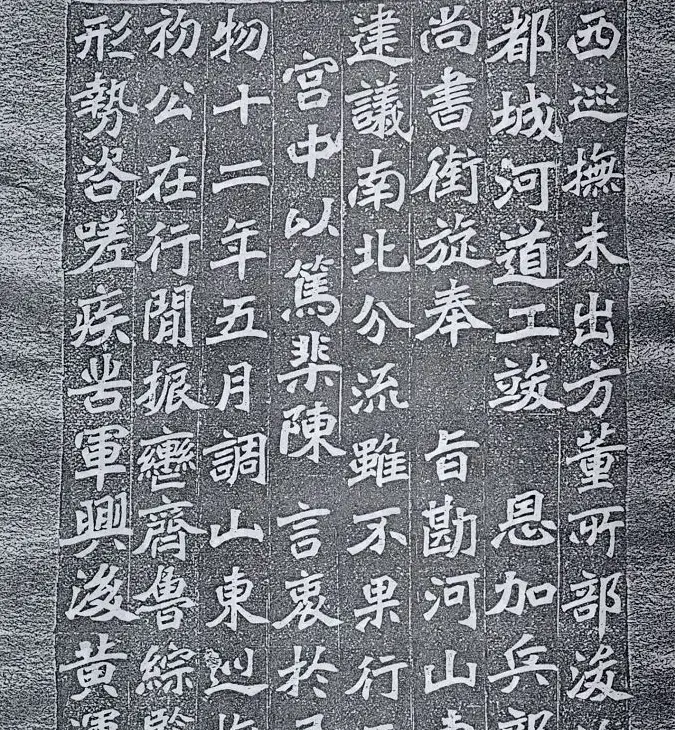 西巡撫未出方董所部浚
都城河道工竣 恩加兵部
尚書銜旋奉 旨勘河山東
建議南北分流雖不果行
宮中以篤棐陳 言衷於
物十二年五月調山東巡撫
初公在行閒振轡齊魯綜
形勢咨嗟疾苦軍興後黃運